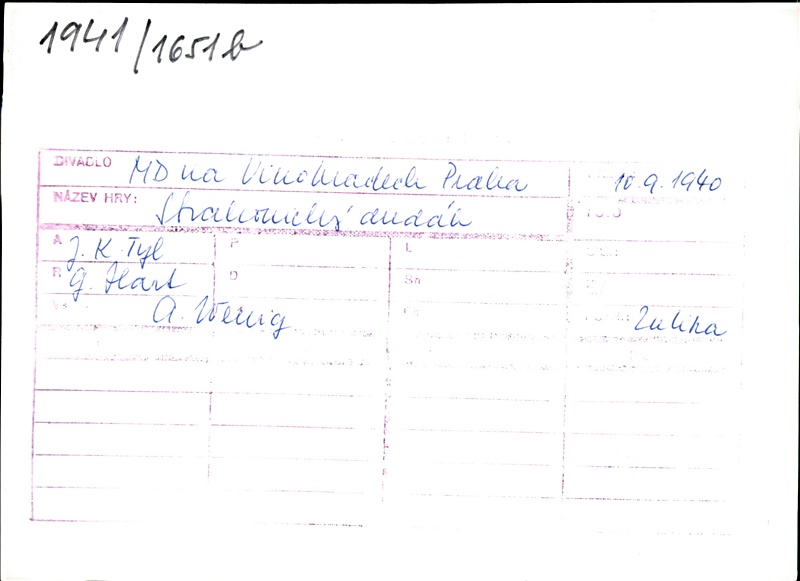 1941/1651b
DIVADLO MD na Vinohradech Praha 10.9.1940
NÁZEV HRY: Strakonický dudák
A J. K. Tyl P L
R G. Hart D Sn
A. Wenig Zulika